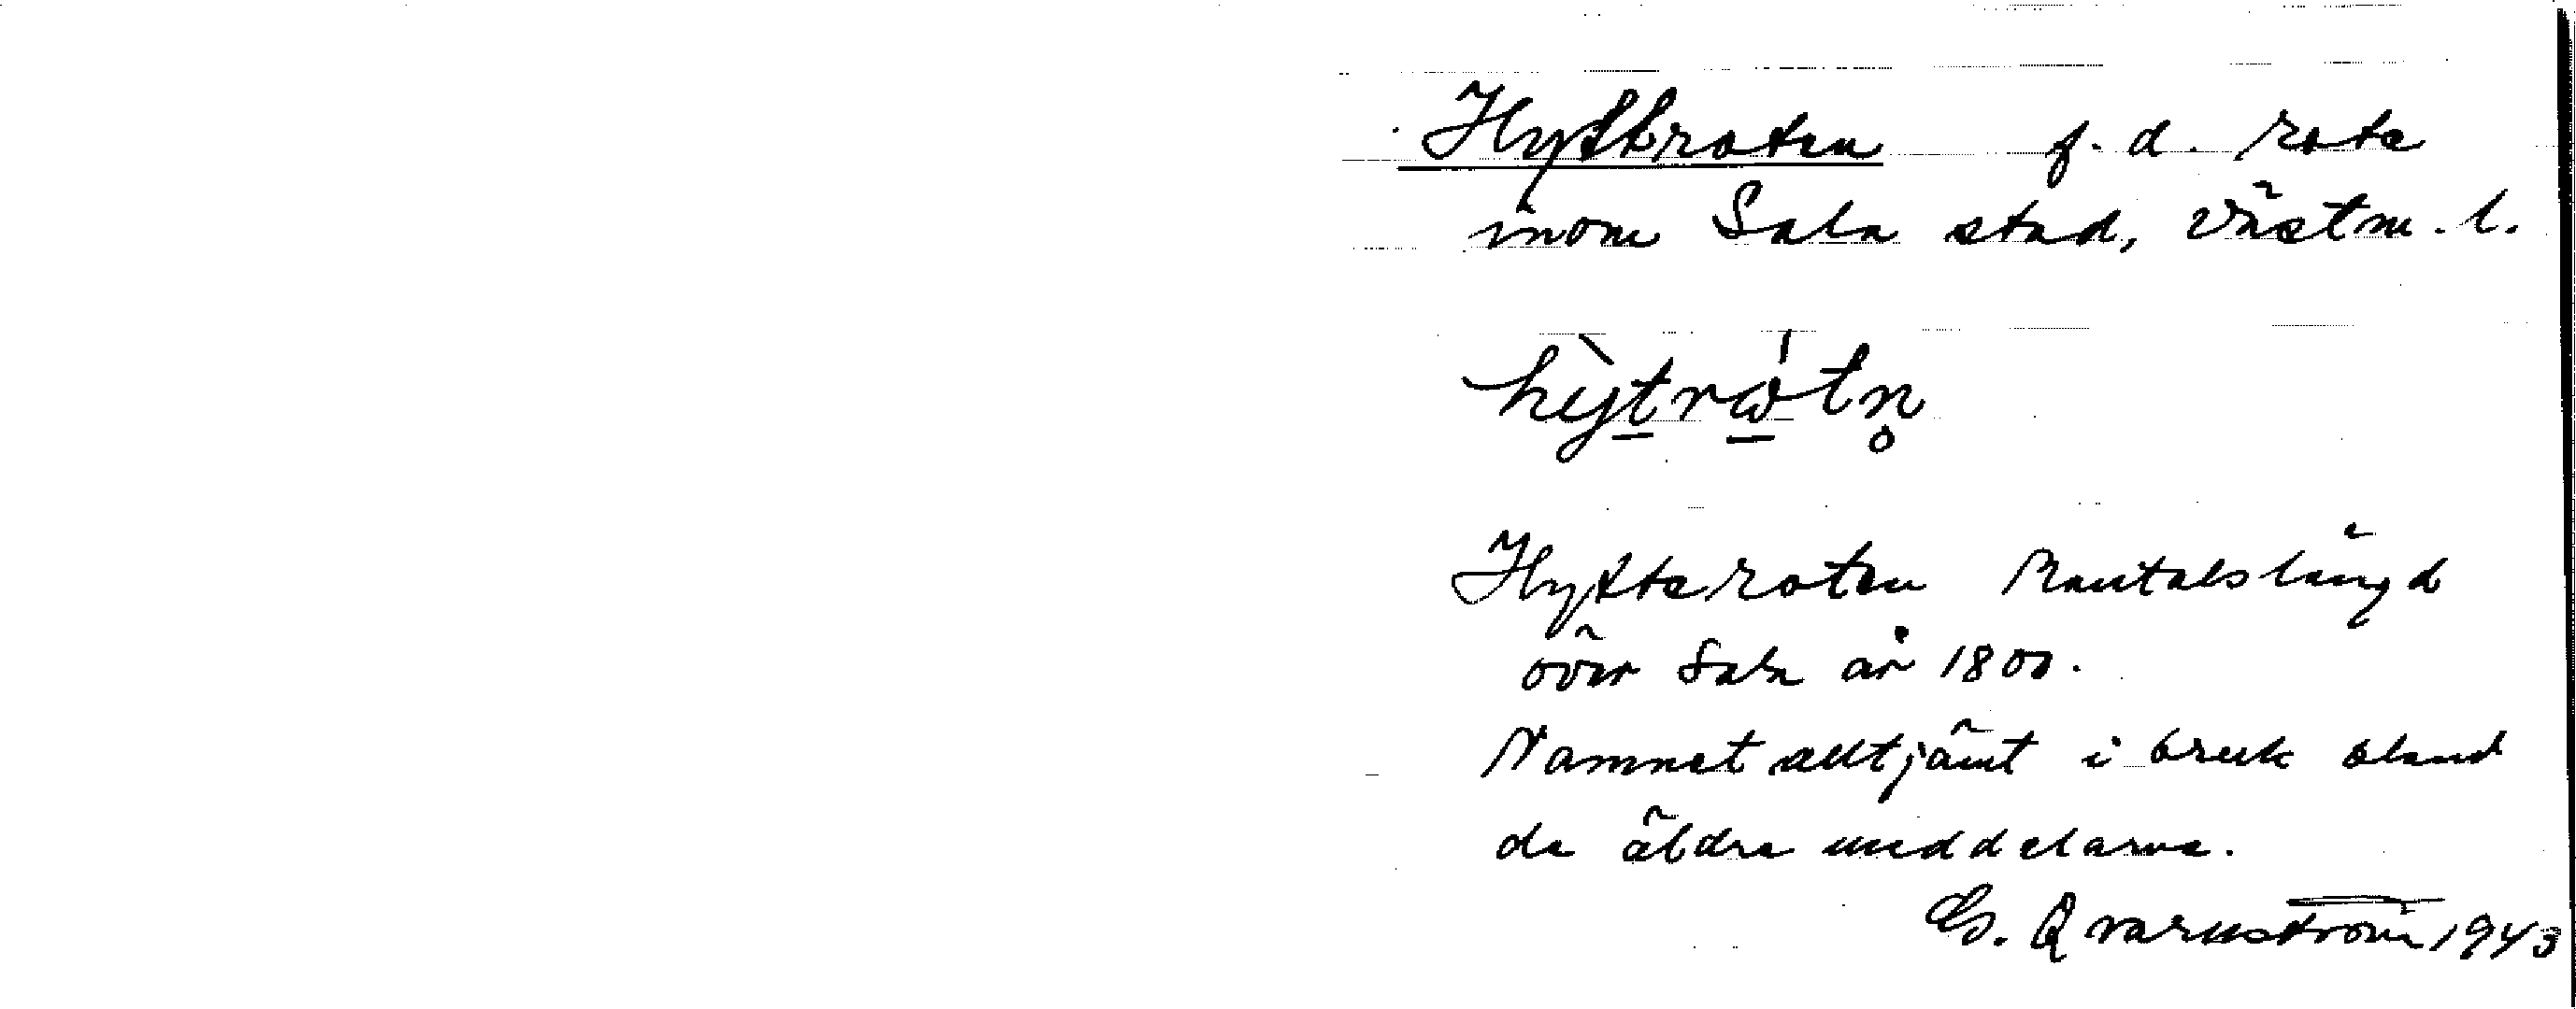 Hyttroten f. d. rote
inom Sala stad, Västm. l.
hy̆̀trὼtn̥
Hytteroten Mantalslängd
över Sala år 1800.
Namnet alltjämt i bruk bland
de äldre meddelarna.
G. Qvarnström 1943